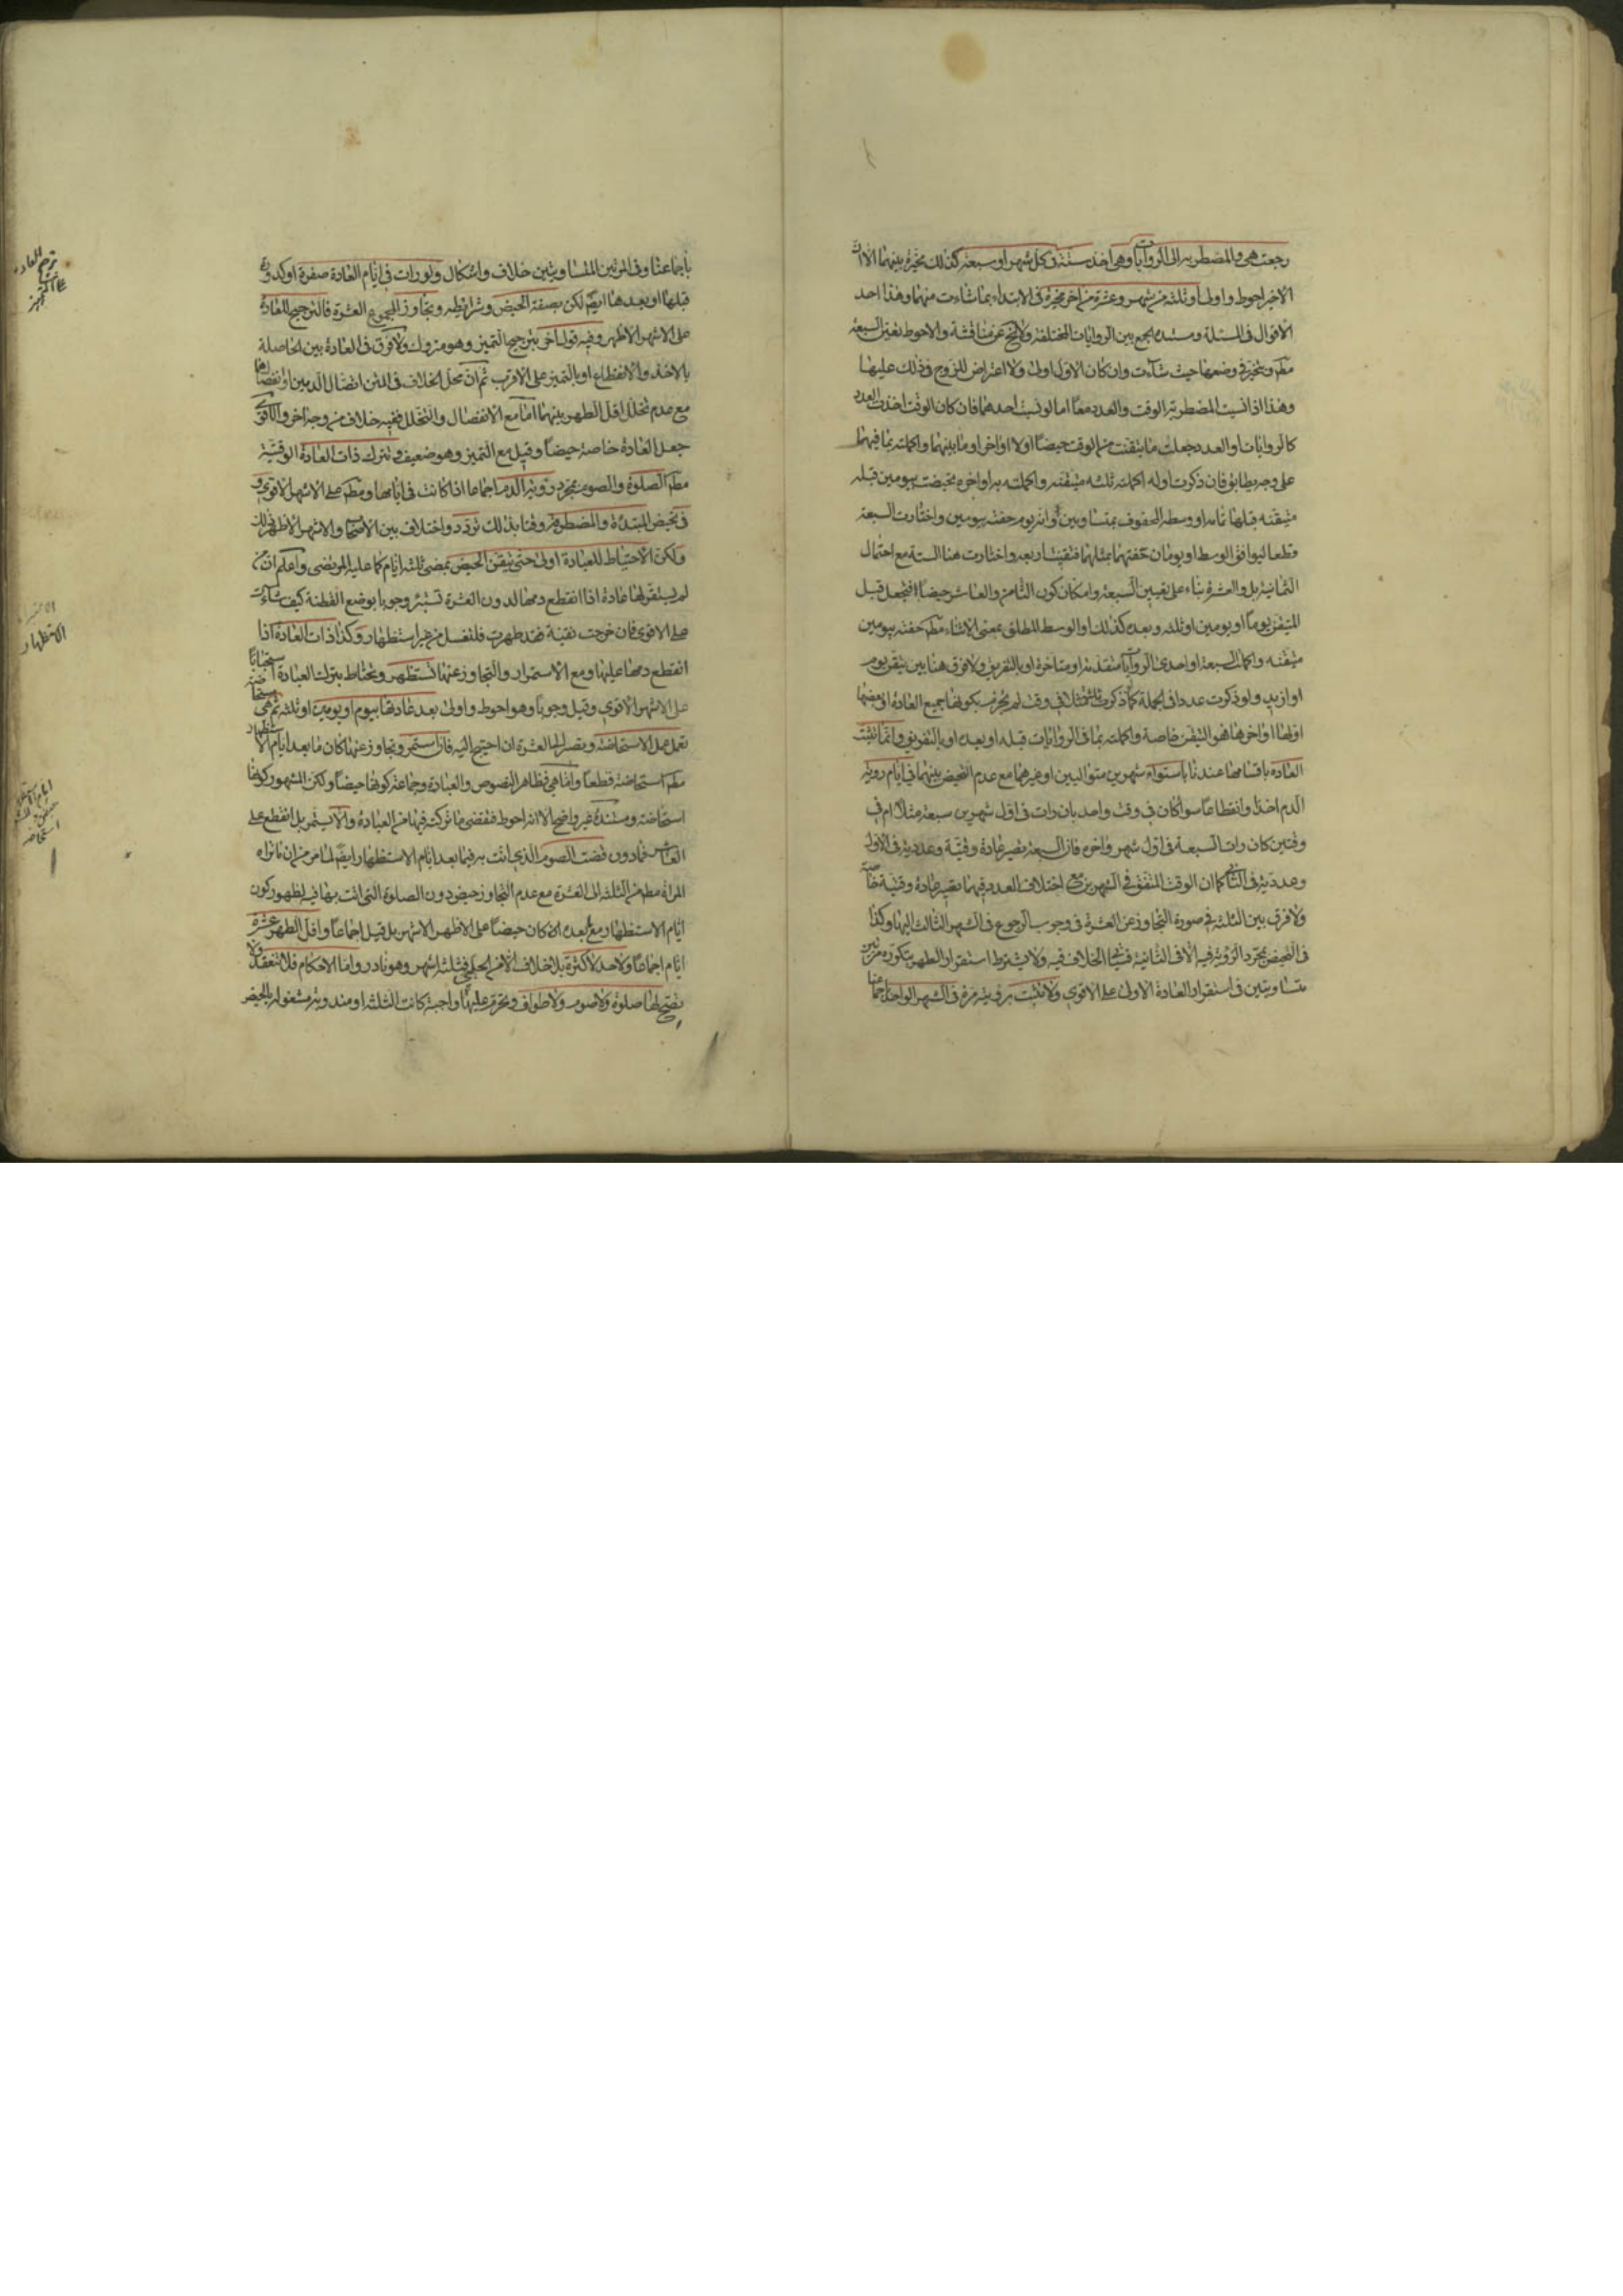 رجعت هي والمضطربه الى الروايات وهي اخذ ستة في كل شهر او سبعة كذلك مخيرة بينهما الا ان
الاخير احوط واولى او ثلثه من شهر وعشرة من اخر مخيرة في الابتداء بما شاءت منهما وهذا احد
الاقوال في المسئلة ومستنده الجمع بين الروايات المختلفة ولا يخ عن مناقشة والاحوط تعين السبعة
مطم وتتخير في وضعها حيث شاءت وان كان الاول اولى ولا اعتراض للزوج في ذلك عليها
وهذا اذا نسيت المضطربة الوقت والعدد معا اما لو نسيت احدهما فان كان الوقت اخذت العدد
كالروايات او العدد جعلت ما تيقنت من الوقت حيضا اولا او اخرا او ما بينهما واكملته بما فيهما
على وجه يطابق فان ذكرت اوله اكملته ثلثه متيقنه واكملته به او اخره تحيضت بيومين قبله
متيقنه قبلها تمامه او وسطه المحفوف بمتساويين وانه يوم حفته بيومين واختارت السبعة
قطعا ليوافق الوسط او يومان حفتهما بمثلهما فتيقنت اربعه واختارت هنا الستة مع احتمال
الثمانية بل والعشرة بناء على تعيين السبعة وامكان كون الثامن والعاشر حيضا فتجعل قبل
المتيقن يوما او يومين او ثلثه وبعده كذلك او الوسط المطلق بمعنى الاثناء مطم حفته بيومين
متيقنه واكملت السبعة او احدى الروايات متقدمة او متاخرة او بالتفريق ولا فرق هنا بين تيقن يوم
او ازيد ولو ذكرت عددا في الجملة كما ذكرت ثلثه مثلا في وقت لم يحرم بكونها جميع العادة او بعضها
اولها او اخرها فهو المتيقن خاصة واكملته بما في الروايات قبله او بعده او بالتفريق وانما تثبت
العادة باقسامها عندنا باستواء شهرين متواليين او غيرهما مع عدم التحيض بينهما في ايام روية
الدم اخذا وانقطاعا سوا كان في وقت واحد بان رات في اول شهرين سبعة مثلا ام في
وقتين كان رات السبعة في اول شهر واخره فان السبعة تصير عادة وقتية وعددية في الاول
وعددية في الثاني كما ان الوقت المتفق في الشهرين مع اختلاف العدد فيهما يصير عادة وقتية خاصة
ولا فرق بين الثلثه في صورة التجاوز عن العشرة في وجوب الرجوع في الشهر الثالث اليها وكذا
في التحيض بمجرد الرؤية فيه الا في الثانية الخلاف فيه ولا يشترط استقرار الطهر بتكرره مرتين
متساويتين في استقرار العادة الاولى على الاقوى ولا تثبت برؤيته مرة في الشهر الواحد اجماعنا
باجماعنا وفي المرتين المتساويتين خلاف واشكال ولو رات في ايام العادة صفرة او كدورة
قبلها او بعدها ايضم لكن بصفة الحيض وشرايطه وتجاوز المجموع العشرة فالترجيح للعادة
على الاشهر الاظهر وفيه قول اخر بترجيح التميز وهو متروك ولا فرق في العادة بين الحاصلة
بالاخذ والانقطاع او بالتميز على الاقرب ثم ان محل الخلاف في المتن اتصال الدمين او انفصالهما
مع عدم تخلل اقل الطهر بينهما اما مع الانفصال والتخلل ففيه خلاف من وجه اخر والاقوى
جعل العادة خاصة حيضا وقيل مع التميز وهو ضعيف وتترك ذات العادة الوقتية
مطم الصلوة والصوم بمجرد روية الدم اجماعا اذا كانت في ايامها ومطم على الاشهر الاقوى و
في تحيض المبتدئة والمضطربة وقتا بذلك تردد واختلاف بين الاصحاب والاشهر الاظهر ذلك
ولكن الاحتياط للعبادة اولى حتى تتيقن الحيض بمضي ثلثه ايام كما عليه المرتضى واعلم ان من
لم يستقر لها عادة اذا انقطع دمها لدون العشرة تستبرء وجوبا بوضع القطنة كيف شاءت
على الاقوى فان خرجت نقية فقد طهرت فلتغسل من غير استظهار وكذا ذات العادة اذا
انقطع دمها عليها ومع الاستمرار والتجاوز عنها تستظهر وتحتاط بترك العبادة استحبابا
على الاشهر الاقوى وقيل وجوبا وهو احوط واولى بعد عادتها بيوم او يومين او ثلثه ثم هي
تعمل عمل الاستحاضة وتصبر الى العشرة ان احتيج اليه فان استمر وتجاوز عنها كان ما بعد ايام الاستظهار
مطم استحاضة قطعا واما هي فظاهر النصوص والعبادة وجماعة كونها حيضا ولكن المشهور كونها
استحاضة ومستنده غير واضح الا انه احوط فتقضي ما تركت فيها من العبادة والا يستمر بل انقطع على
العاشر فما دون قضت الصوم الذي اتت به فيما بعد ايام الاستظهار ايضم لما مر من ان ما تراه
المراة مطم من الثلثه الى العشرة مع عدم التجاوز حيض دون الصلوة التي اتت بها فيه لظهور كون
ايام الاستظهار مع ما بعده الامكان حيضا على الاظهر الاشهر بل قيل اجماعا واقل الطهر عشرة
ايام اجماعا ولا حد لاكثره بلا خلاف الا من الحلبي فثلثه اشهر وهو نادر واما الاحكام فلا تنعقد ولا
تصح لها صلوة ولا صوم ولا طواف ويحرم عليها واجبة كانت الثلثه او مندوبة مشغوله بالحيض
ترجيح العادة
على التميز
الاستظهار
ايام الاستظهار
استحاضه